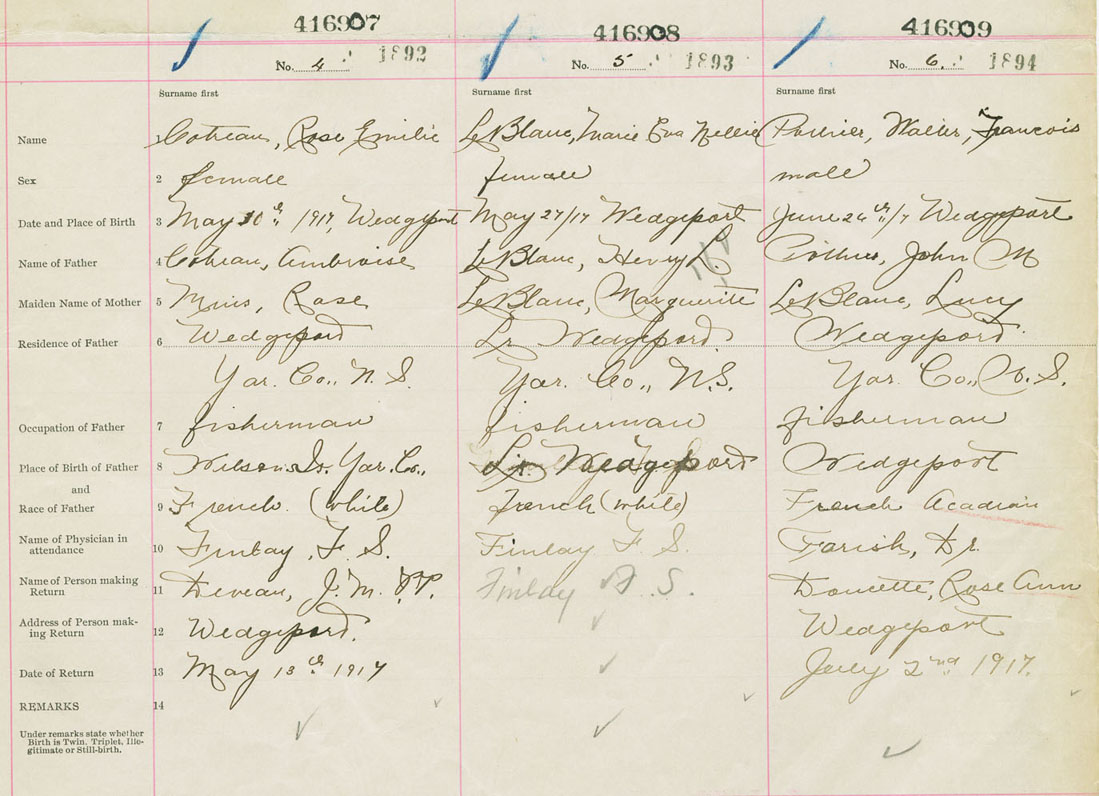 416907 416908 416909
No. 4 1892 No. 5 1893 No. 6. 1894
Surname first Surname first Surname first
Name 1 Cotreau, Rose Emilie LeBlanc, Marie Eva Nellie Pothier, Walter, Francois
Sex 2 female female male
Date and Place of Birth 3 May 10th 1917, Wedgeport May 27/17 Wedgeport June 26th/17 Wedgeport
Name of Father 4 Cotreau, Ambroise LeBlanc, Henry L. Pothier, John M
Maiden Name of Mother 5 Mius, Rose LeBlanc, Marguerite LeBlanc, Lucy
Residence of Father 6 Wedgeport Lr Wedgeport Wedgeport
Yar. Co., N. S. Yar. Co., N.S. Yar. Co., N. S.
Occupation of Father 7 fisherman fisherman fisherman
Place of Birth of Father 8 Wilsons Is. Yar. Co., Lr. Wedgeport Wedgeport
and
Race of Father 9 French (white) French (white) French Acadian
Name of Physician in
attendance 10 Finlay, F. S. Finlay F. S. Farish, Dr.
Name of Person making
Return 11 Deveau, J. M. P.P. Finlay F. S. Doucette, Rose Ann
Address of Person mak-
ing Return 12 Wedgeport. Wedgeport
Date of Return 13 May 13th 1917 July 2nd 1917.
REMARKS 14
Under remarks state whether
Birth is Twin, Triplet, Ille-
gitimate or Still-birth.